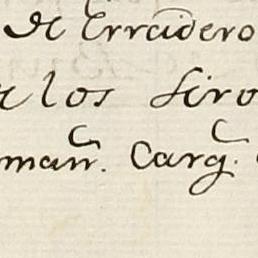 de Erreidero
los Siro
man. Carg.